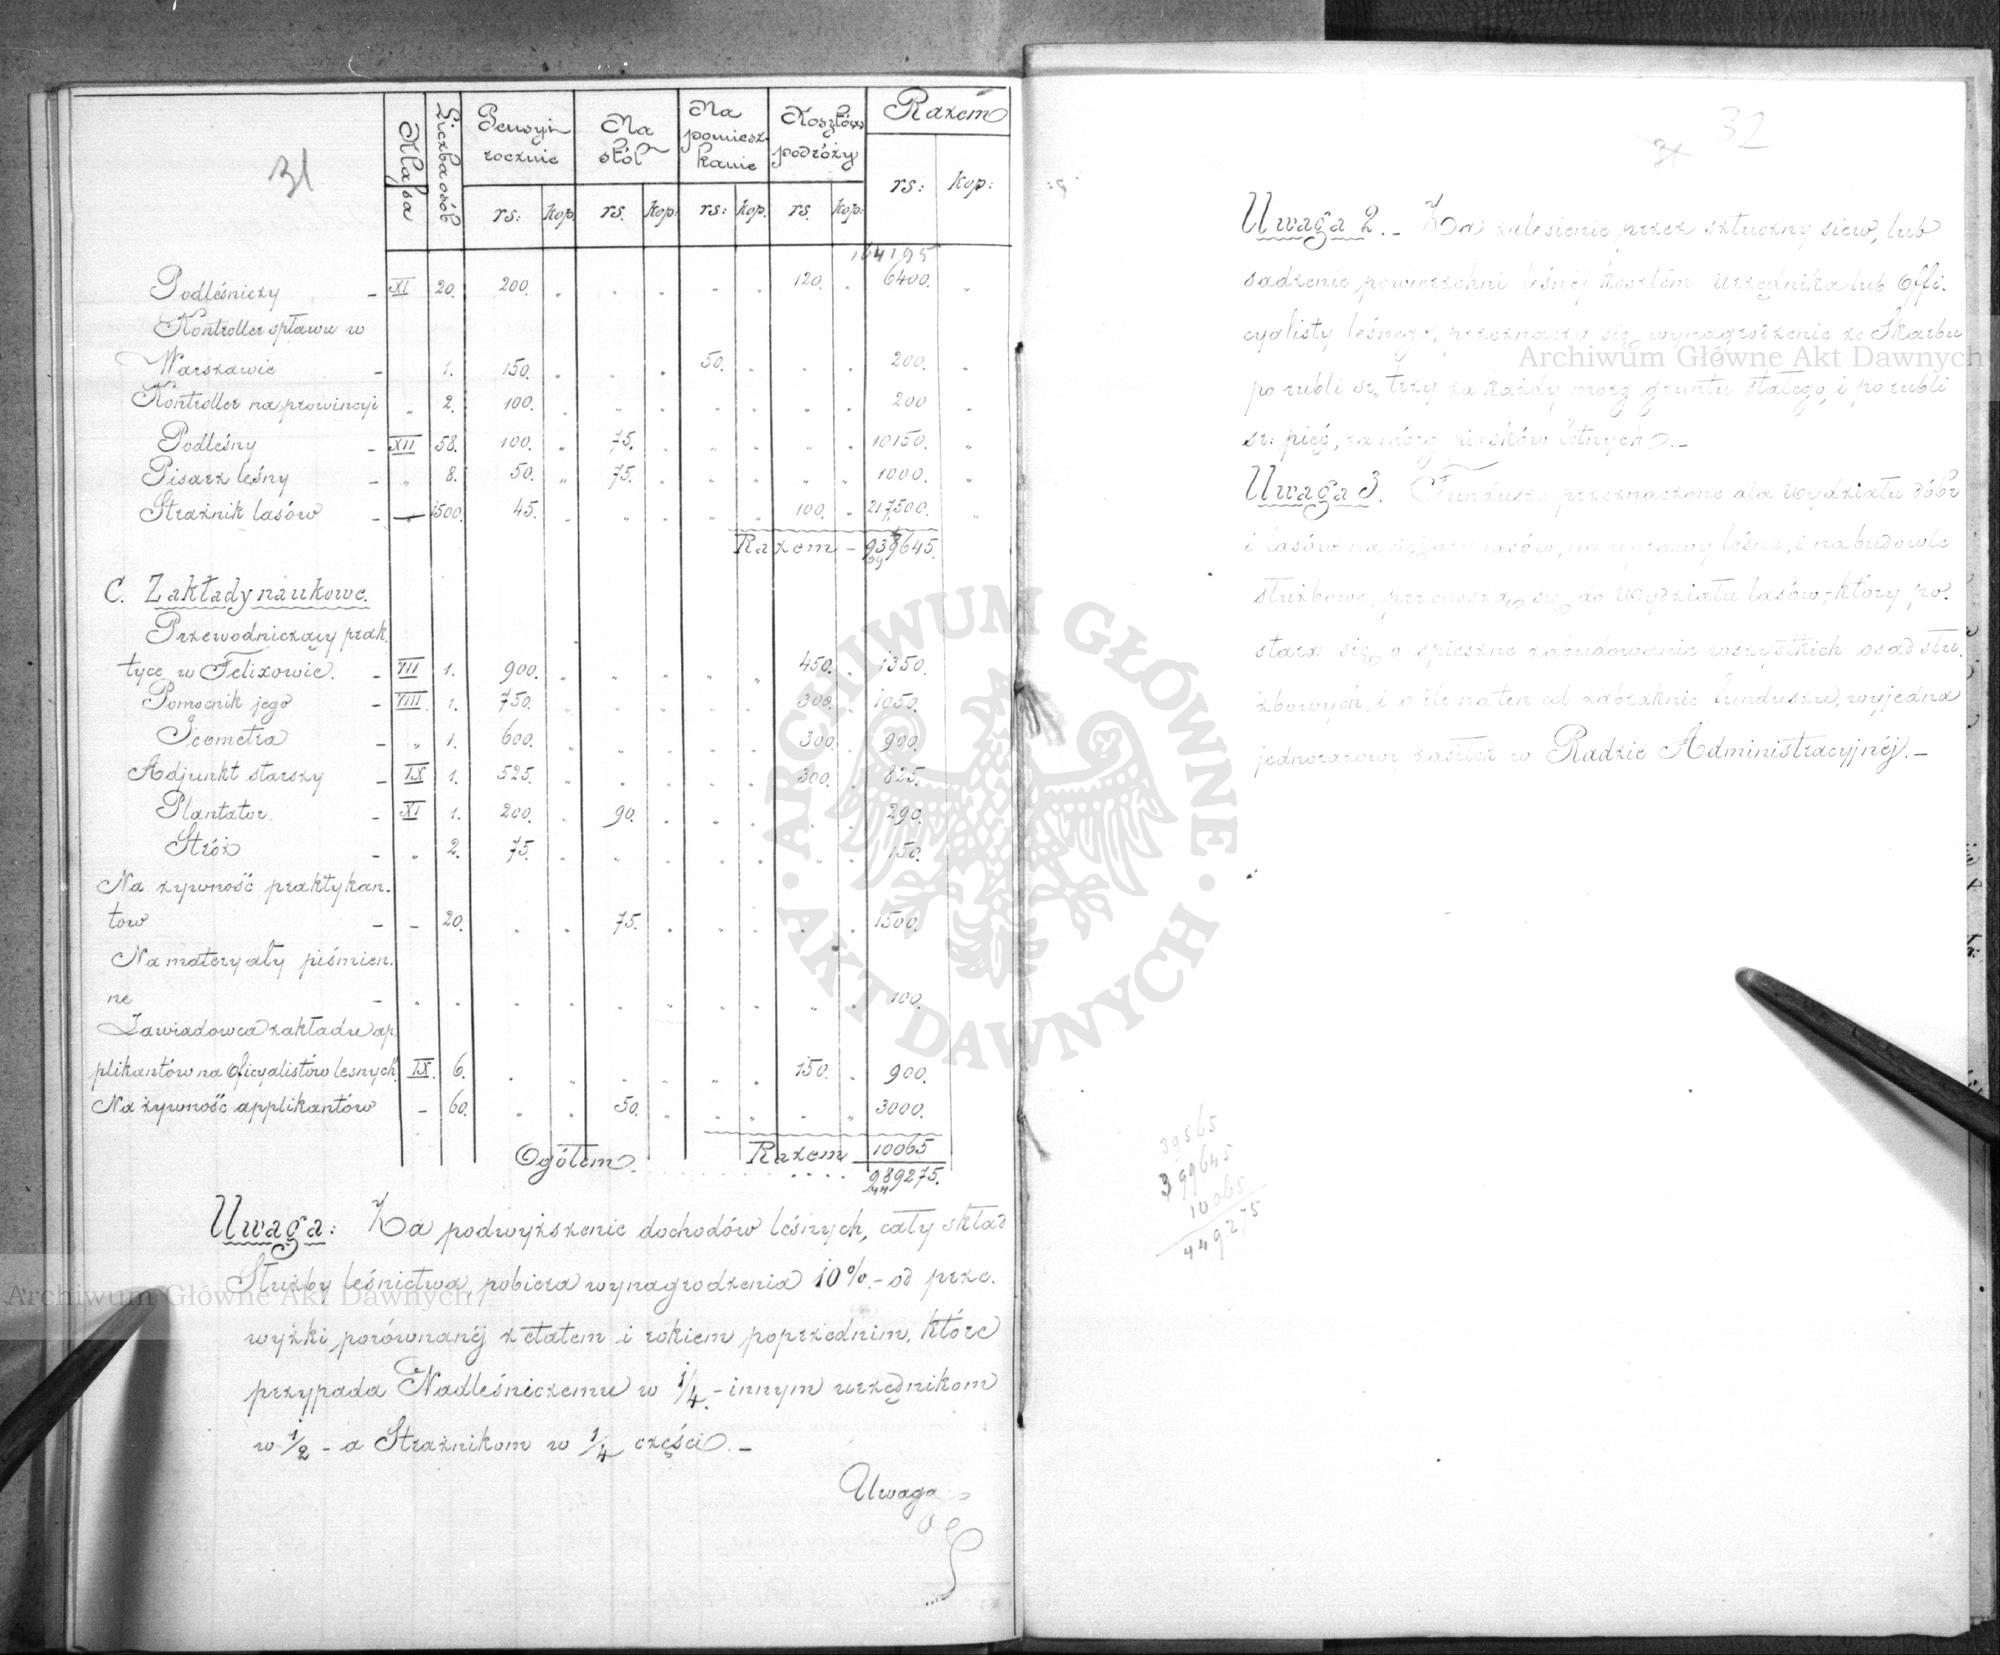 31
Klasa | Liczba osób | Pensyi rocznie | Na stół | Na pomiesz kanie | Kosztów podróży | Razem
rs: | kop. | rs. | kop: | rs: | kop. | rs. | kop: | rs: | kop:
164195
Podleśniczy – XI 20. 200. " " " " " 120. " 6400. "
Kontroller spławu w
Warszawie – 1. 150. " " " 50. " " " 200. "
Kontroller na prowincyi " 2. 100. " " " " " " " 200 "
Podleśny – XII 58. 100. " 75. " " " " " 10150. "
Pisarz leśny – " 8. 50. " 75. " " " " " 1000. "
Strażnik lasów – – 1500. 45. " " " " " 100. " 217,500. "
Razem – 939645.
C. Zakłady naukowe.
Przewodniczący prak.
tyce w Felixowie. – VIII 1. 900. " " " " " 450. " 1350.
Pomocnik jego – VIII. 1. 750. " " " " " 300. " 1050.
Geometra – " 1. 600. " " " " " 300. " 900.
Adjunkt starszy – IX 1. 525. " " " " " 300. " 825.
Plantator. – XI 1. 200. " 90. " " " " " 290.
Stróż – " 2. 75. " " " " " " " 150.
Na żywność praktykan.
tów – – 20. " " 75. " " " " " 1500.
Na materyały piśmien.
ne – " " " " " " " " " " 100.
Zawiadowca zakładu ap.
plikantów na oficyalistów lesnych IX. 6. " " " " " " 150. " 900.
Na żywność applikantów – 60. " " 50. " " " " " 3000.
Razem 10065
Ogółem. . . . . . . 989275.
Uwaga: Za podwyższenie dochodów leśnych, cały skład
Służby leśnictwa, pobiera wynagrodzenia 10%.– od prze.
wyżki porównanéj z etatem i rokiem poprzednim, które
przypada Nadleśniczemu w 1/4.– innym urzędnikom
w 1/2 – a Strażnikom w 1/4 części. –
Uwaga
31 32
Uwaga 2. – Za zalesienie przez sztuczny siew, lub
sadzenie powierzchni leśnéj kosztem urzędnika lub Offi.
cyalisty leśnego, przeznacza się wynagrodzenie ze Skarbu
po rubli sr. trzy za każdy morg gruntu stałego, i po rubli
sr: pięć, za mórg piasków lotnych. –
Uwaga 3. Fundusze przeznaczone dla Wydziału dóbr
i lasów na lasów, na uprawy leśne, i na budowle
służbowe, przenoszą się do Wydziału lasów, który po.
stara się o spieszne zabudowanie wszystkich osad słu.
żbowych, i o ile na ten cel zabraknie funduszu, wyjedna
jednorazowy zasiłek w Radzie Administracyjnéj. –
39565
399645
10065
449275
Archiwum Główne Akt Dawnych
Archiwum Główne Akt Dawnych
ARCHIWUM GŁÓWNE · AKT DAWNYCH ·